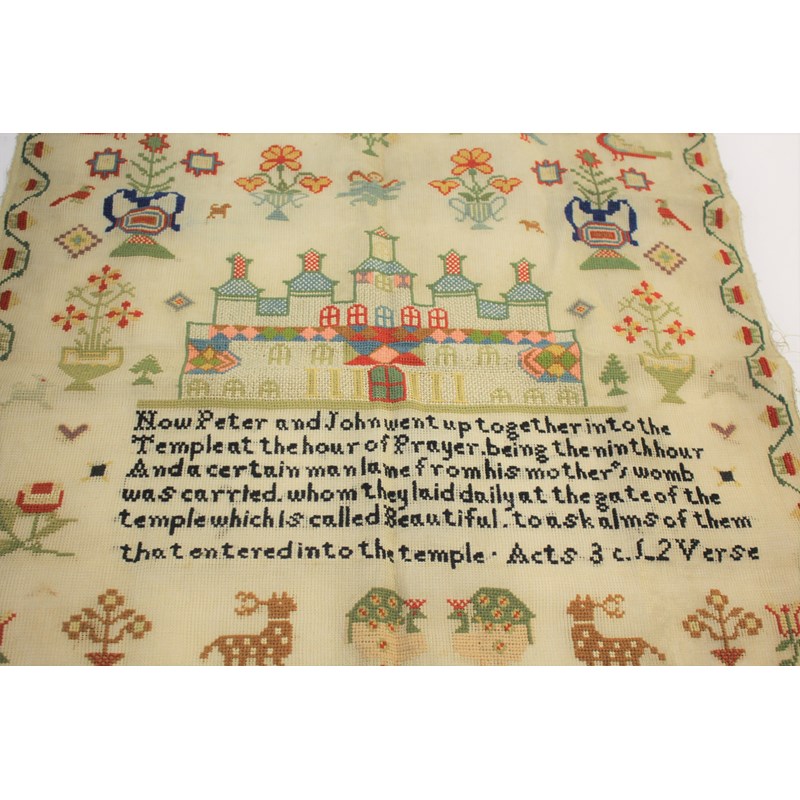 Now Peter and John went up together into the
Temple at the hour of Prayer. being the ninth hour
And a certain man lame from his mother's womb
was carried. whom they laid daily at the gate of the
temple which Is called Beautiful. to ask alms of them
that entered into the temple. Acts 3 c. 1.2 Verse